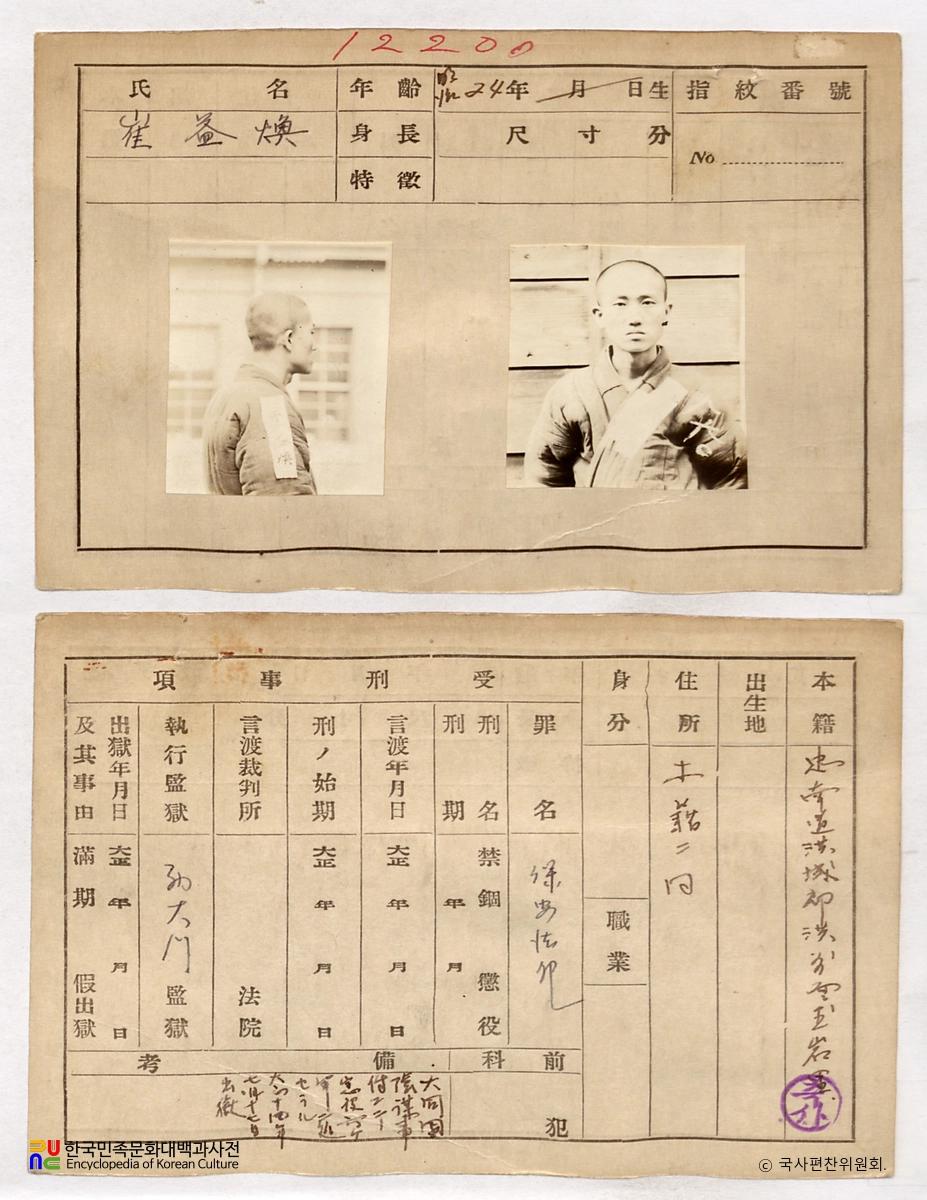 12200
氏名
崔益煥
年齡
明治24年 月 日生
身長
尺寸分
特徵
指紋番號
No
本籍
忠南道洪城郡洪
出生地
住所
本籍ニ同
身分
職業
受刑事項
罪名
保安法犯
刑名
禁錮 懲役
刑期
年 月
言渡年月日
大正 年 月 日
刑ノ始期
大正 年 月 日
言渡裁判所
法院
執行監獄
西大門監獄
出獄年月日
及其事由
大正 年 月 日
滿期 假出獄
前科
犯
備考
大同團
陰謀事
件ニ
出獄
한국민족문화대백과사전
Encyclopedia of Korean Culture
© 국사편찬위원회.